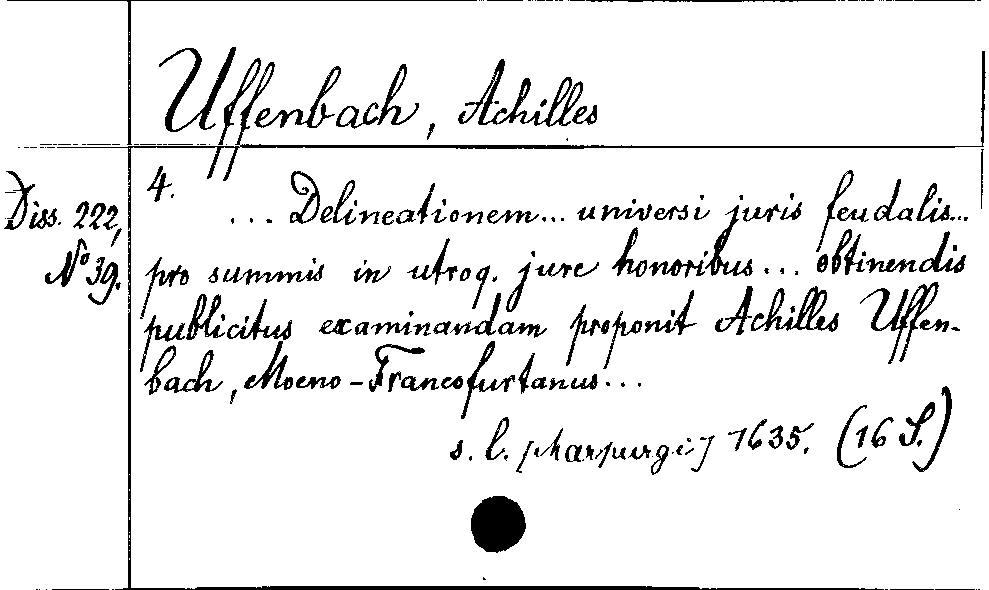 Uffenbach, Achilles
Diss. 222,
No 39.
4.
... Delineationem... universi juris feudalis...
pro summis in utroq. jure honoribus... obtinendis
publicitus examinandam proponit Achilles Uffen-
bach, Moeno-Francofurtanus...
s. l. [Marpurgi] 1635. (16 S.)